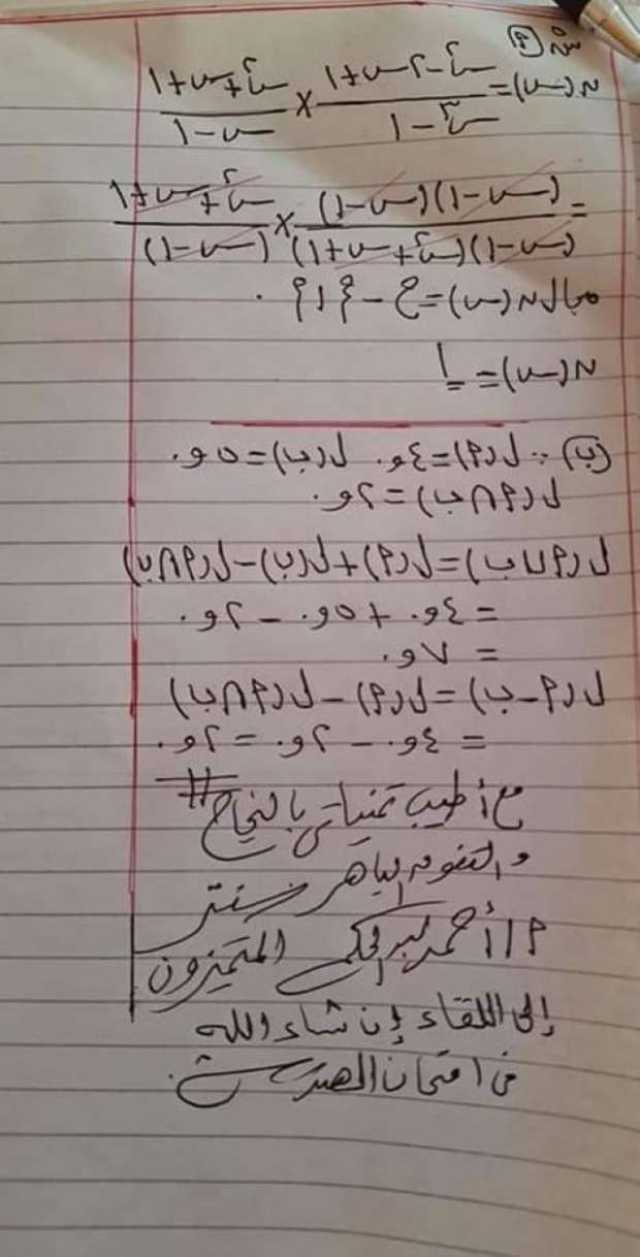 س ٤
ن(س) = (س² - ٢س + ١)/(س³ - ١) × (س² + س + ١)/(س - ١)
= (س - ١)(س - ١)/(س - ١)(س² + س + ١) × (س² + س + ١)/(س - ١)
مجال ن(س) = ح - {١}.
ن(س) = ١
(ب) ∵ ل(أ) = ٤و. ل(ب) = ٥و.
ل(أ∩ب) = ٢و.
ل(أ∪ب) = ل(أ) + ل(ب) - ل(أ∩ب)
= ٤و. + ٥و. - ٢و.
= ٧و.
ل(أ-ب) = ل(أ) - ل(أ∩ب)
= ٤و. - ٢و. = ٢و.
مع أطيب تمنياتى بالنجاح #
والتفوق الباهر سنتر
أ/ أحمد المتميزون
إلى اللقاء إن شاء الله
فى امتحان الهندسة